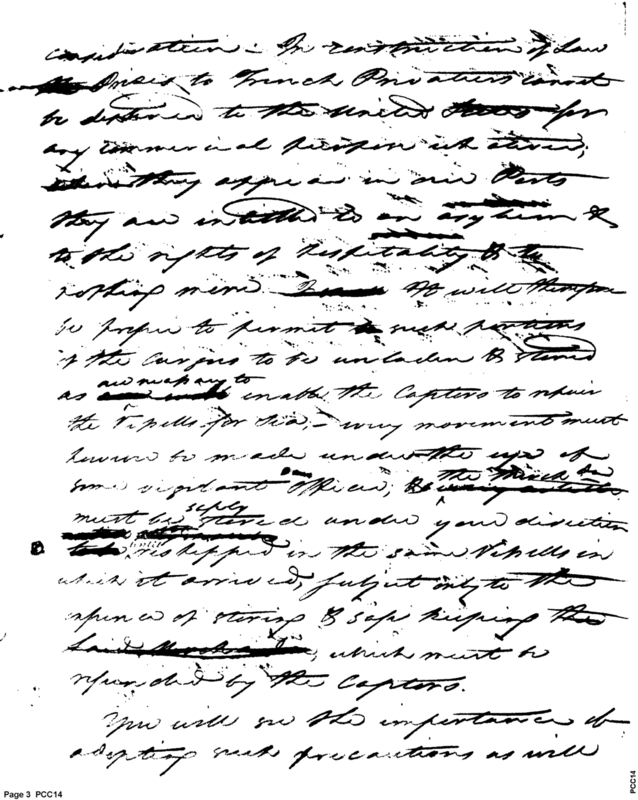 consideration – In construction of Law
Prizes to French Privatiers cannot
be destined to the United States for
any commercial purpose whatever;
they appear in our Ports
they are intitled to an asylum &
to the rights of hospitality & to
nothing more. It will therefore
be proper to permit such portions
of the Cargoes to be unladen & stored
as are necessary to enable the Captors to repair
the Vessells for Sea, – every movement must
however be made under the eye of
some vigilant officer; & the Merch
must be safely stored under your direction
reshipped in the same Vessells in
which it arrived, subject only to the
expence of storing & safe keeping
which must be
refunded by the Captors.
You will see the importance of
adopting such precautions as will
Page 3 PCC14
PCC14